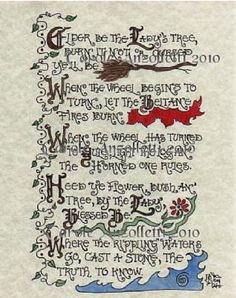 Elder be the Lady's tree,
burn it not or cursed
ye'll be
When the wheel begins to
turn, let the Beltane
fires burn
When the wheel has turned
the Horned one rules.
Heed ye flower, bush, an'
tree, by the Lady
Blessed Be
Where the rippling waters
go, cast a stone, the
truth to know.
2010
2010